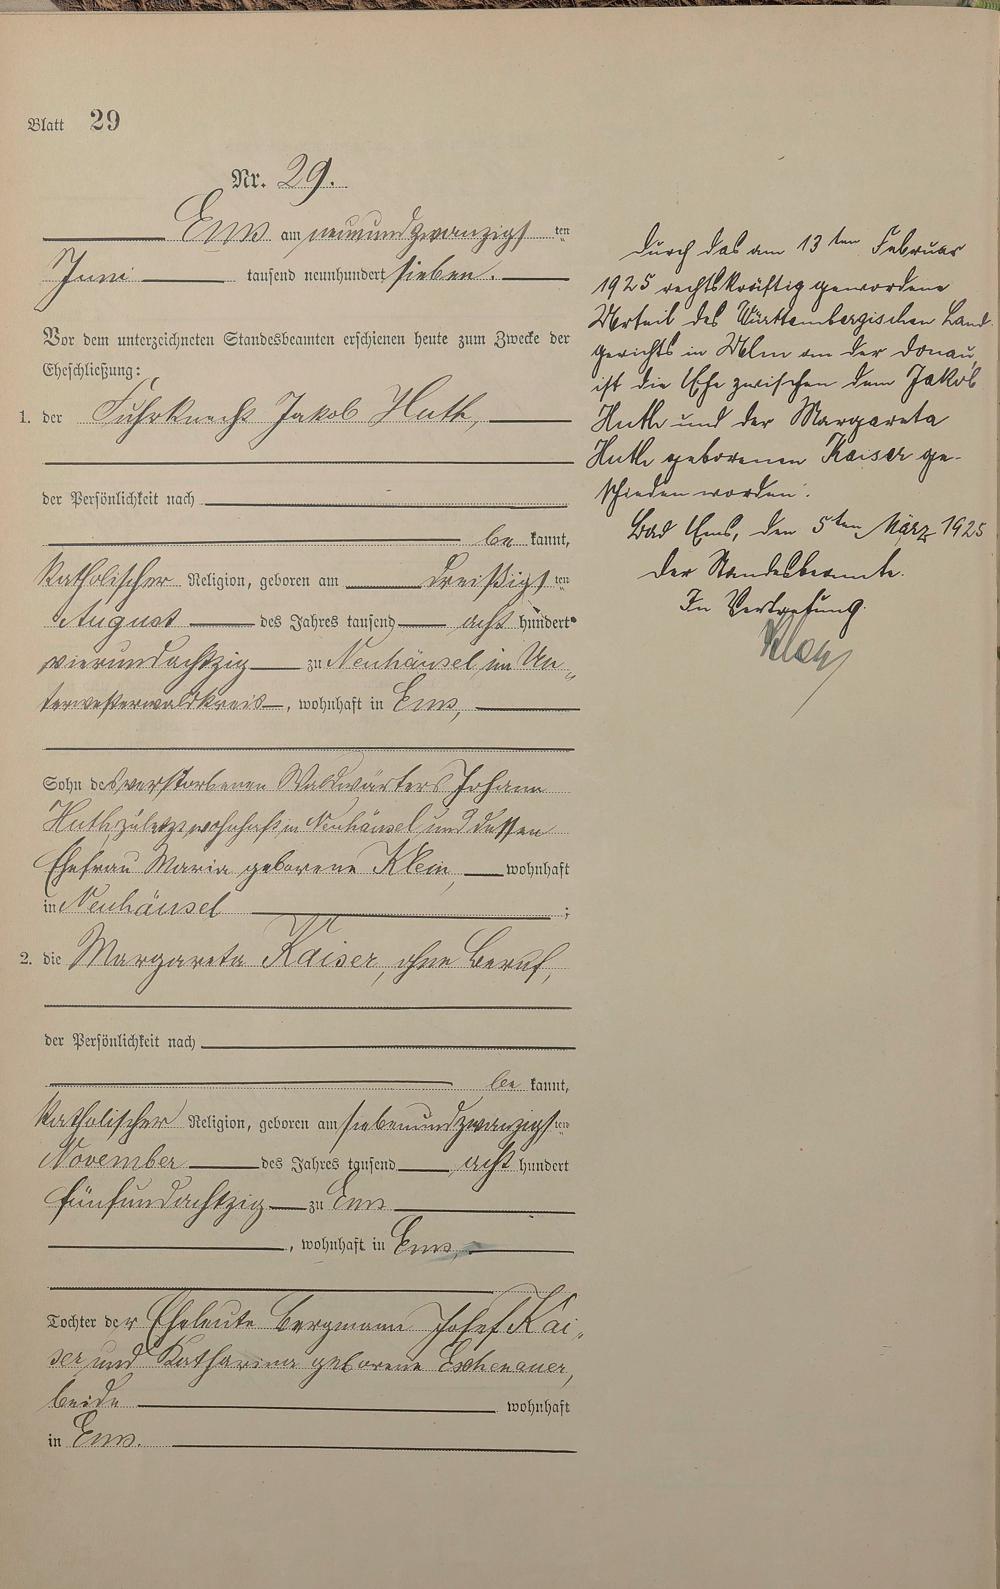 Blatt 29
Nr. 29.
Ems am neunundzwanzigsten
Juni tausend neunhundert sieben.
Vor dem unterzeichneten Standesbeamten erschienen heute zum Zwecke der
Eheschließung:
1. der Fuhrknecht Jakob Huth,
der Persönlichkeit nach
be kannt,
katholischer Religion, geboren am dreißigsten
August des Jahres tausend acht hundert
vierundachtzig zu Neuhäusel im Un„
terwesterwaldkreis, wohnhaft in Ems,
Sohn des verstorbenen Waldwärters Johann
Huth zuletzt wohnhaft in Neuhäusel und dessen
Ehefrau Maria geborene Klein, wohnhaft
in Neuhäusel ;
2. die Margareta Kaiser, ohne Beruf,
der Persönlichkeit nach
be kannt,
katholischer Religion, geboren am siebenundzwanzigsten
November des Jahres tausend acht hundert
fünfundachtzig zu Ems
, wohnhaft in Ems,
Tochter der Eheleute Bergmann Josef Kai„
ser und Katharina geborene Eschenauer,
beide wohnhaft
in Ems.
Durch das am 13ten Februar
1925 rechtskräftig gewordene
Urteil des Württembergischen Land-
gerichts in Ulm an der Donau
ist die Ehe zwischen dem Jakob
Huth und der Margareta
Huth geborenen Kaiser ge-
schieden worden.
Bad Ems, den 5ten März 1925
Der Standesbeamte.
In Vertretung.